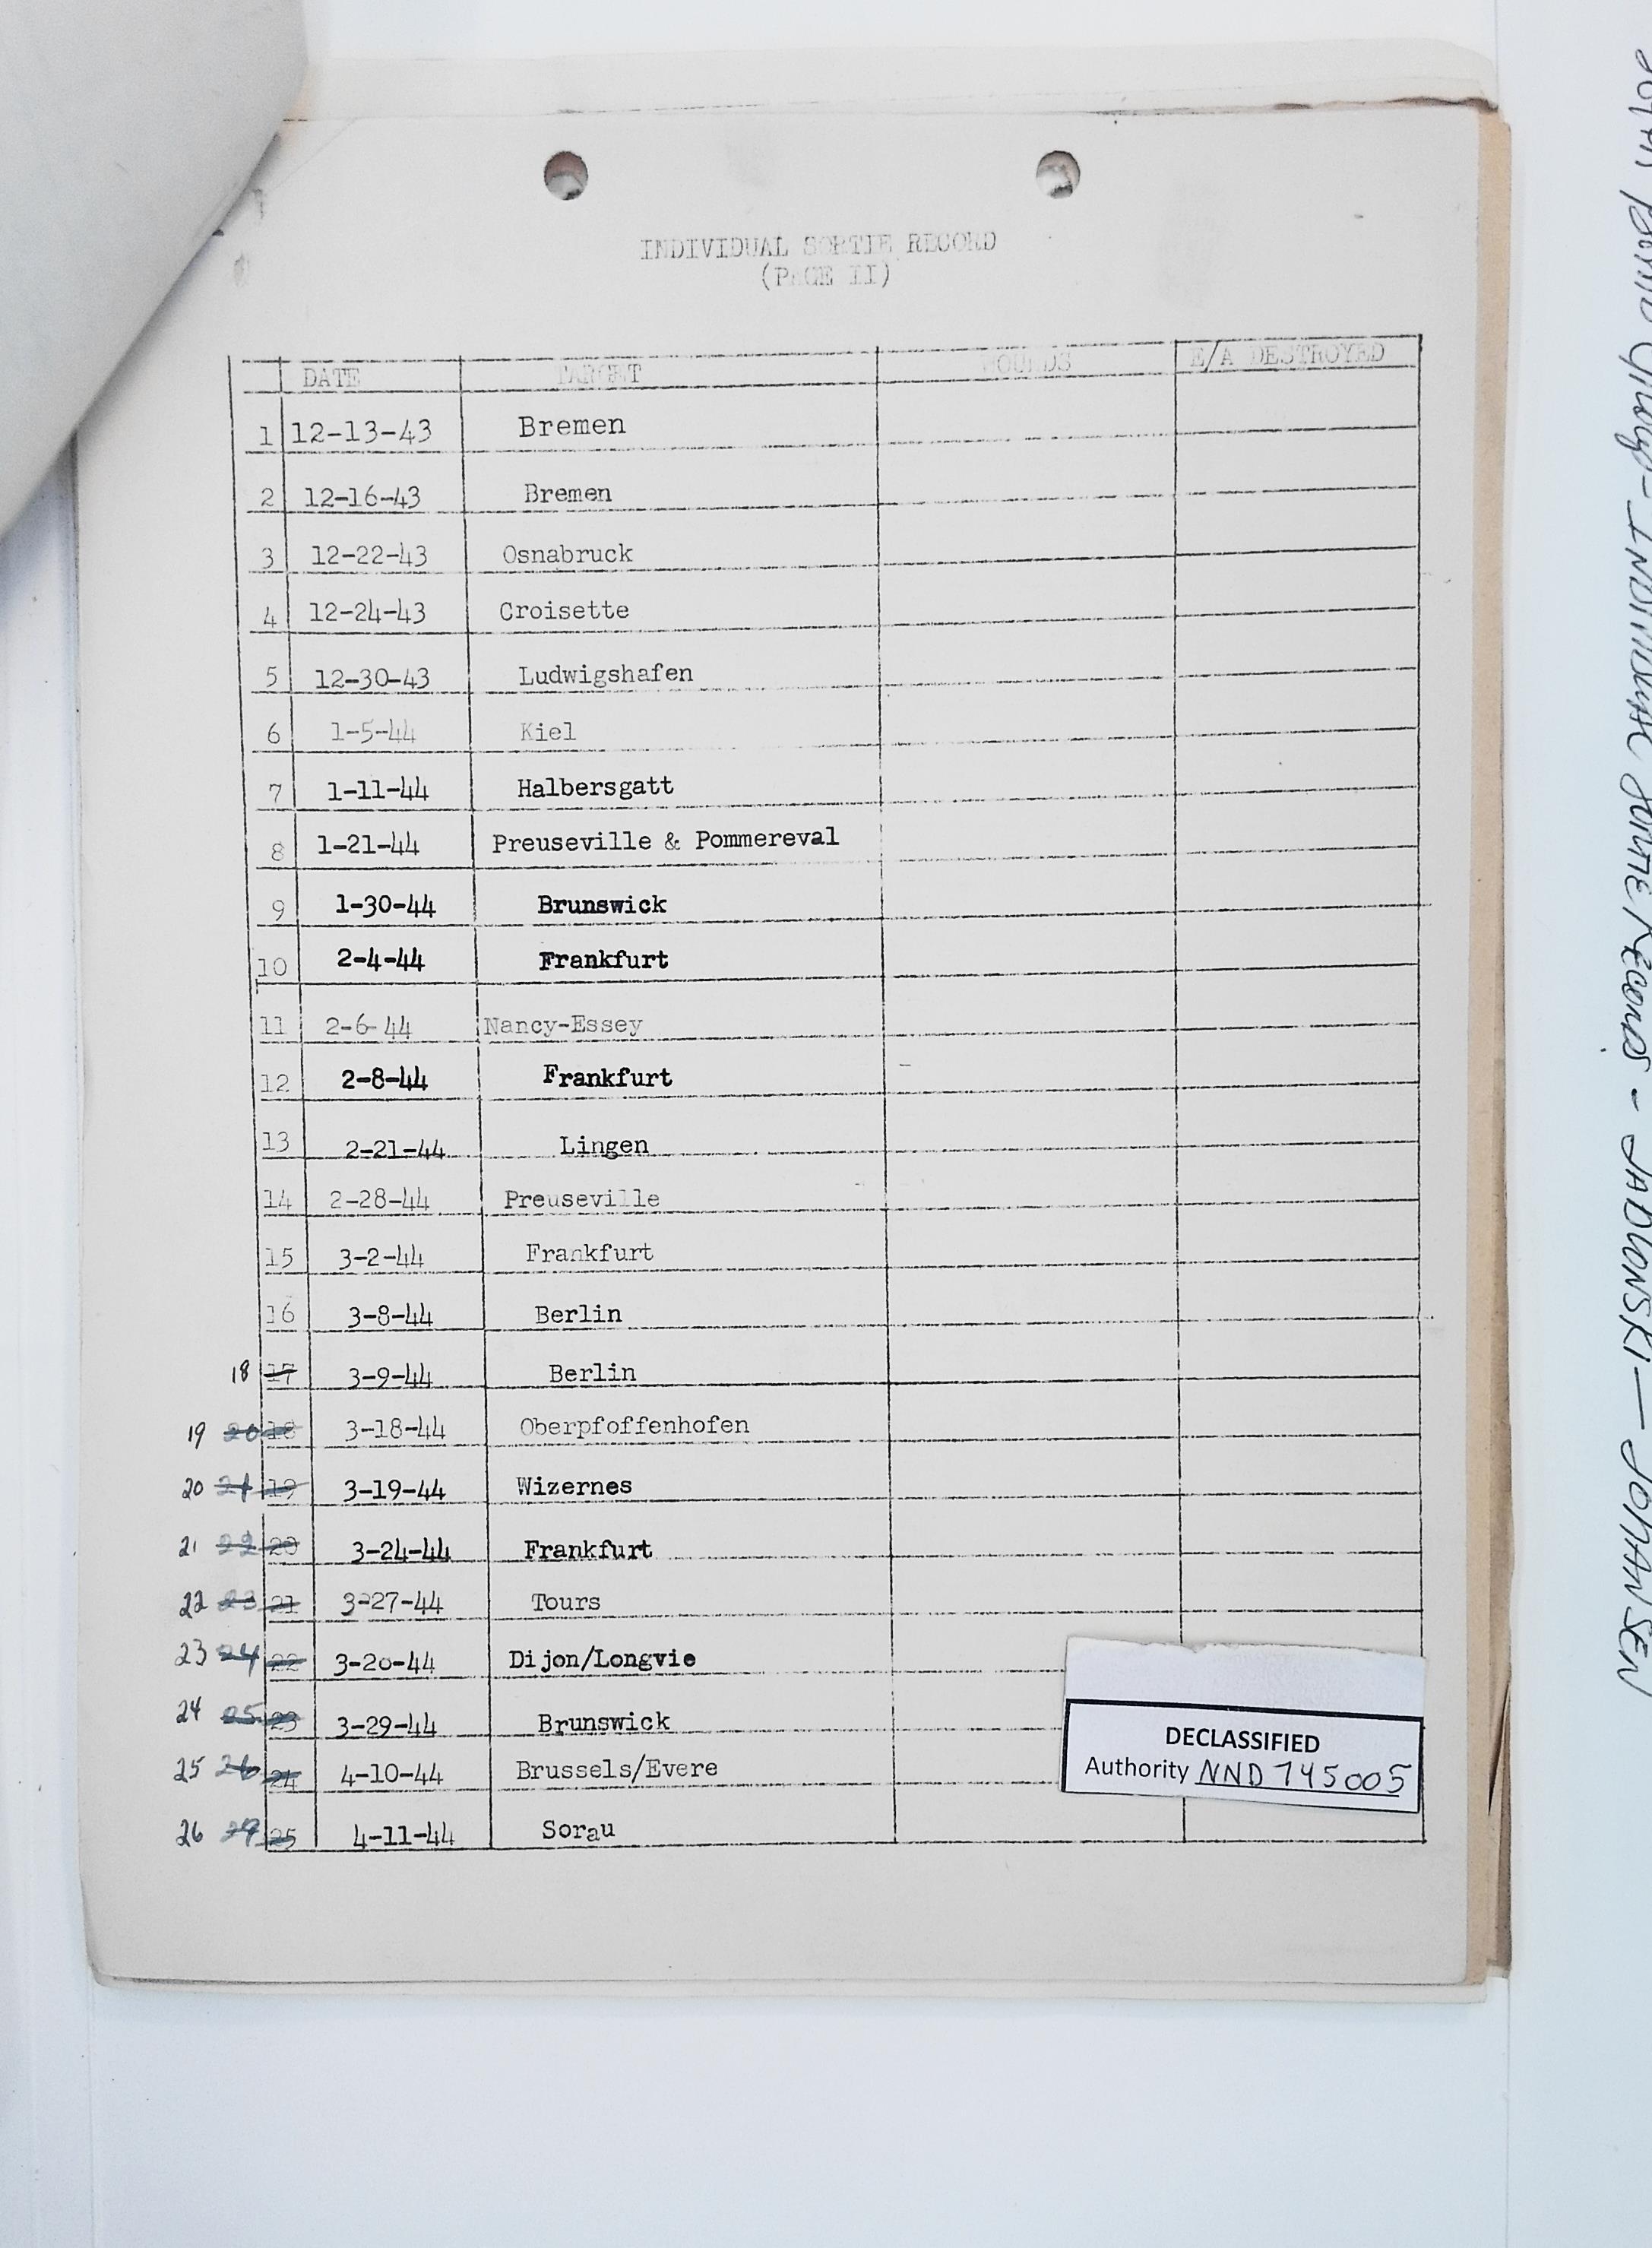 INDIVIDUAL SORTIE RECORD
(PAGE II)
DATE TARGET WOUNDS E/A DESTROYED
1 12-13-43 Bremen
2 12-16-43 Bremen
3 12-22-43 Osnabruck
4 12-24-43 Croisette
5 12-30-43 Ludwigshafen
6 1-5-44 Kiel
7 1-11-44 Halbersgatt
8 1-21-44 Preuseville & Pommereval
9 1-30-44 Brunswick
10 2-4-44 Frankfurt
11 2-6-44 Nancy-Essey
12 2-8-44 Frankfurt
13 2-21-44 Lingen
14 2-28-44 Preuseville
15 3-2-44 Frankfurt
16 3-8-44 Berlin
18 17 3-9-44 Berlin
19 20 18 3-18-44 Oberpfoffenhofen
20 21 19 3-19-44 Wizernes
21 22 20 3-24-44 Frankfurt
22 23 21 3-27-44 Tours
23 24 22 3-20-44 Dijon/Longvie
24 25 23 3-29-44 Brunswick
25 26 24 4-10-44 Brussels/Evere
26 25 4-11-44 Sorau
DECLASSIFIED
Authority NND 745005
Bomb Group - INDIVIDUAL SORTIE RECORDS - JABLONSKI - JOHANSEN